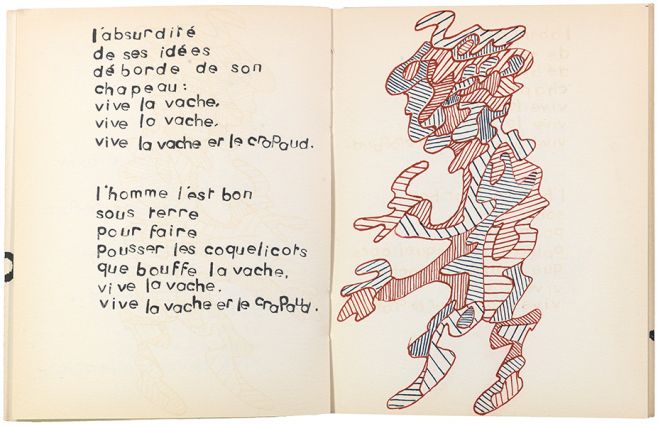 l'absurdité
de ses idées
déborde de son
chapeau:
vive la vache,
vive la vache.
vive la vache et le crapaud.
l'homme l'est bon
sous terre
pour faire
pousser les coquelicots
que bouffe la vache,
vive la vache.
vive la vache et le crapaud.